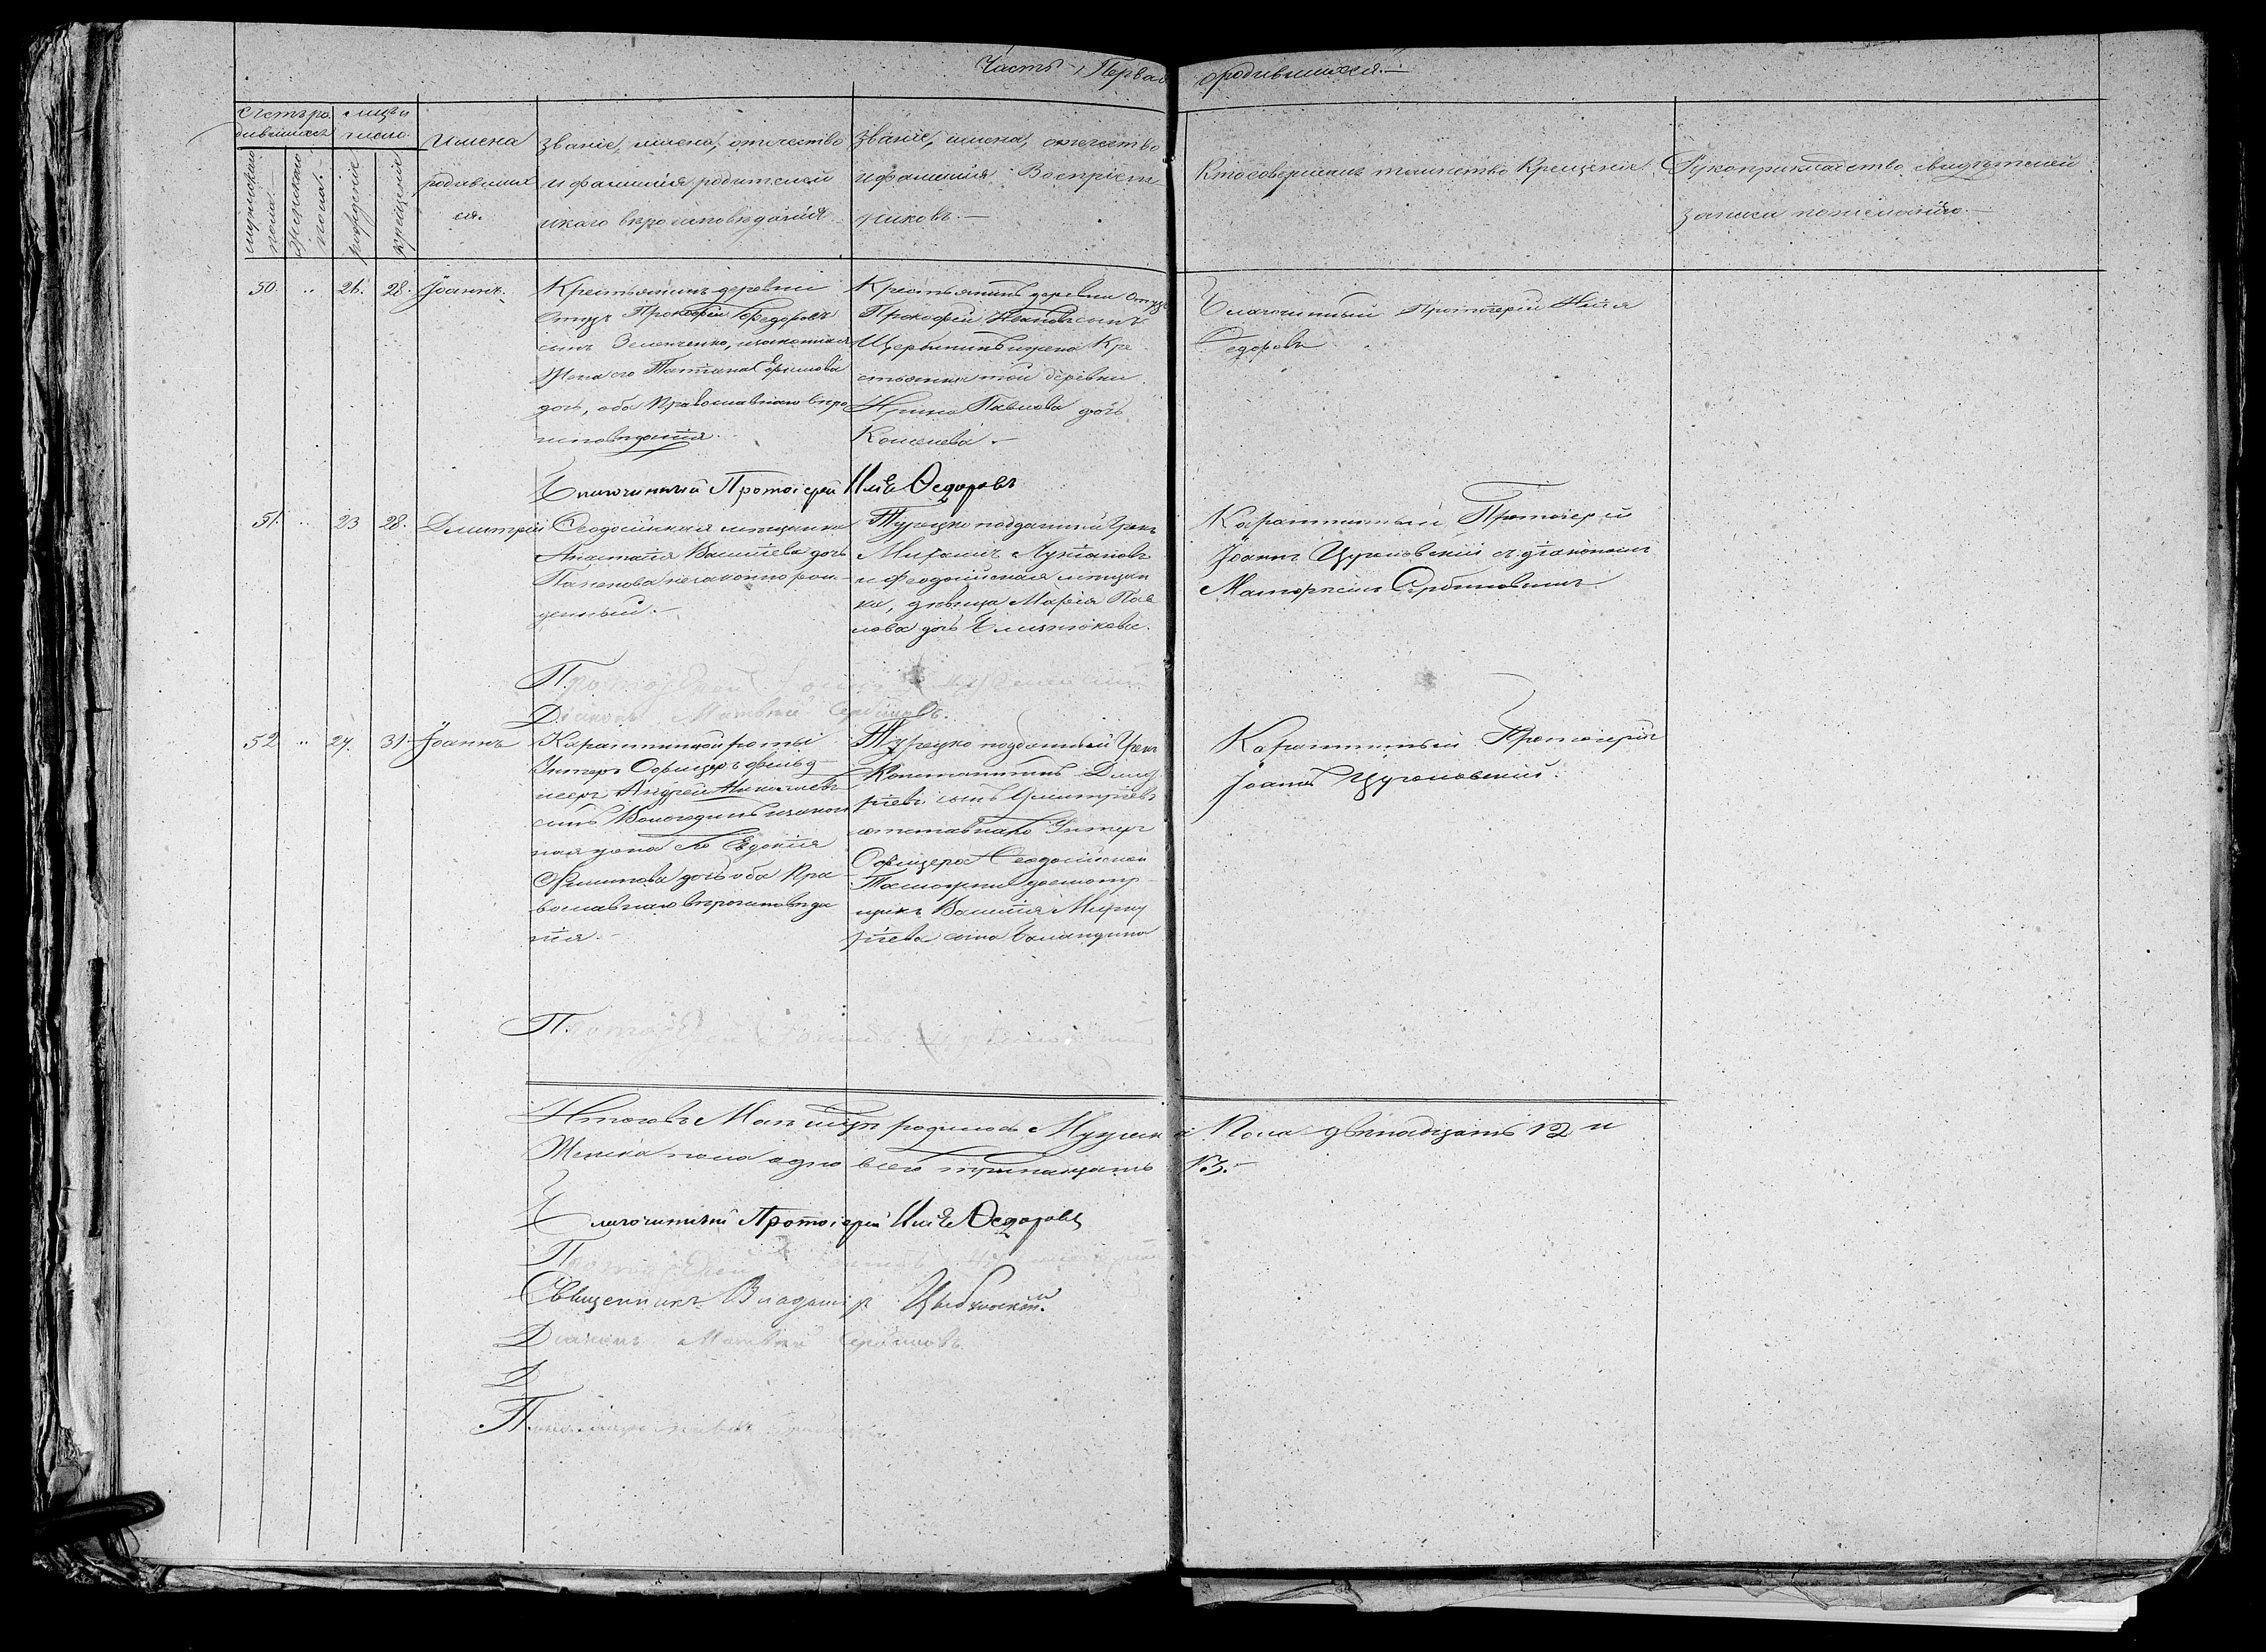 Часть Первая о родившихся.
Счетъ ро-
дившихся
мужескаго пола.
женскаго пола.
мцъ и
число
рожденіе
крещеніе
Имена
родивших
ся.
Званіе, имена, отечество
и фамилія родителей
и каго вѣроисповѣданія
Званіе, имена, отечество
и фамилія Воспріем
никовъ.
Кто совершалъ таинство Крещенія.
Рукоприкладство свидѣтелей
записи по желанію.
50. .. 26. 28. Іоаннъ.
Крестьянинъ деревни
Отузъ Прокофій Федоровъ
сынъ Зеленченко, и законная
жена его Татіана Ефимова
дочь, оба Православнаго вѣро
исповѣданія.
Крестьянинъ деревни Отузъ
Прокофій Ивановъ сынъ
Щербининъ и жена Кре
стьянина той деревни
Ирина Павлова дочь
Кошелева.
Благочинный Протоіерей Илія
Федоровъ
Благочинный Протоіерей Илія Ѳедоровъ
51. .. 23 28. Димитрій
Ѳеодосійская мещанка
Анастасія Васильева дочь
незаконнорож-
денный.
Турецко подданный Грекъ
Лукіановъ
и Феодосійская мещан
ка, дѣвица Марія Пав
лова дочь
Карантинный Протоіерей
Іоаннъ съ діакономъ
Матфеемъ Сербиновымъ
Протоіерей Іоаннъ
Діаконъ Матвѣй Сербиновъ.
52 .. 27. 31. Іоаннъ
Карантинной роты
Унтеръ Офицеръ фельд-
шеръ Андрей Николаевъ
сынъ Вологодинъ и закон
ная жена его Евдокія
Филипова дочь оба Пра-
вославнаго вѣроисповѣда
нія.
Турецко подданный Грекъ
Константинъ Дмит
ріевъ сынъ Димитріевъ
отставнаго Унтеръ
Офицера Ѳеодосійской
Таможни досмотр-
щика Василія
сына Баландина
Карантинный Протоіерей
Іоаннъ
Протоіерей Іоаннъ
Итого въ Маѣ мцѣ родилось Мужеска Пола двѣнадцать 12 и
Женска пола одно всего тринадцать 13.
Благочинный Протоіерей Илія Ѳедоровъ
Протоіерей Іоаннъ
Священникъ Владиміръ
Діаконъ Матвѣй Сербиновъ
Д